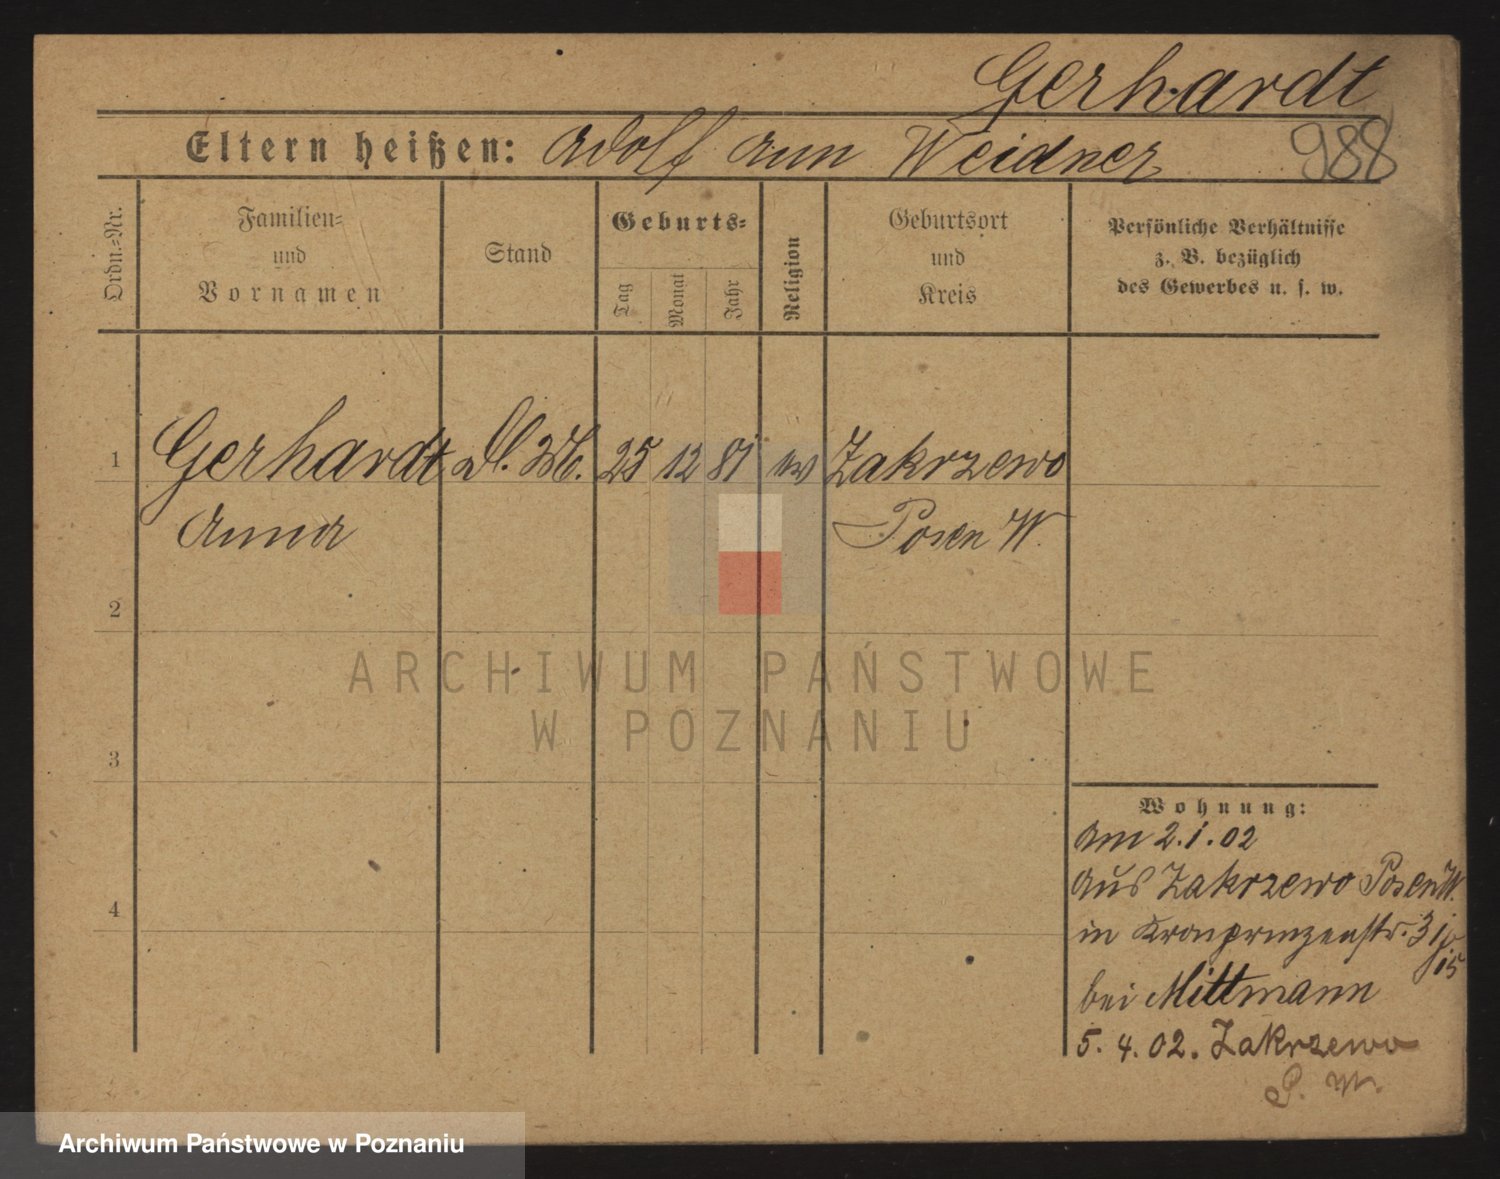 Gerhardt
Eltern heißen: Adolf Ann Weidner 988
Ordn.=Nr.
Familien=
und
Vornamen
Stand
Geburts=
Tag
Monat
Jahr
Religion
Geburtsort
und
Kreis
Persönliche Verhältnisse
z. B. bezüglich
des Gewerbes u. s. w.
1 Gerhardt 25 12 81 ev Zakrzewo
Anna Posen W.
2
3
4
ARCHIWUM PAŃSTWOWE
W POZNANIU
Wohnung:
Am 2.1.02
Aus Zakrzewo Posen W.
in Kronprinzenstr.
bei Mittmann
5. 4. 02. Zakrzewo
P. W.
Archiwum Państwowe w Poznaniu